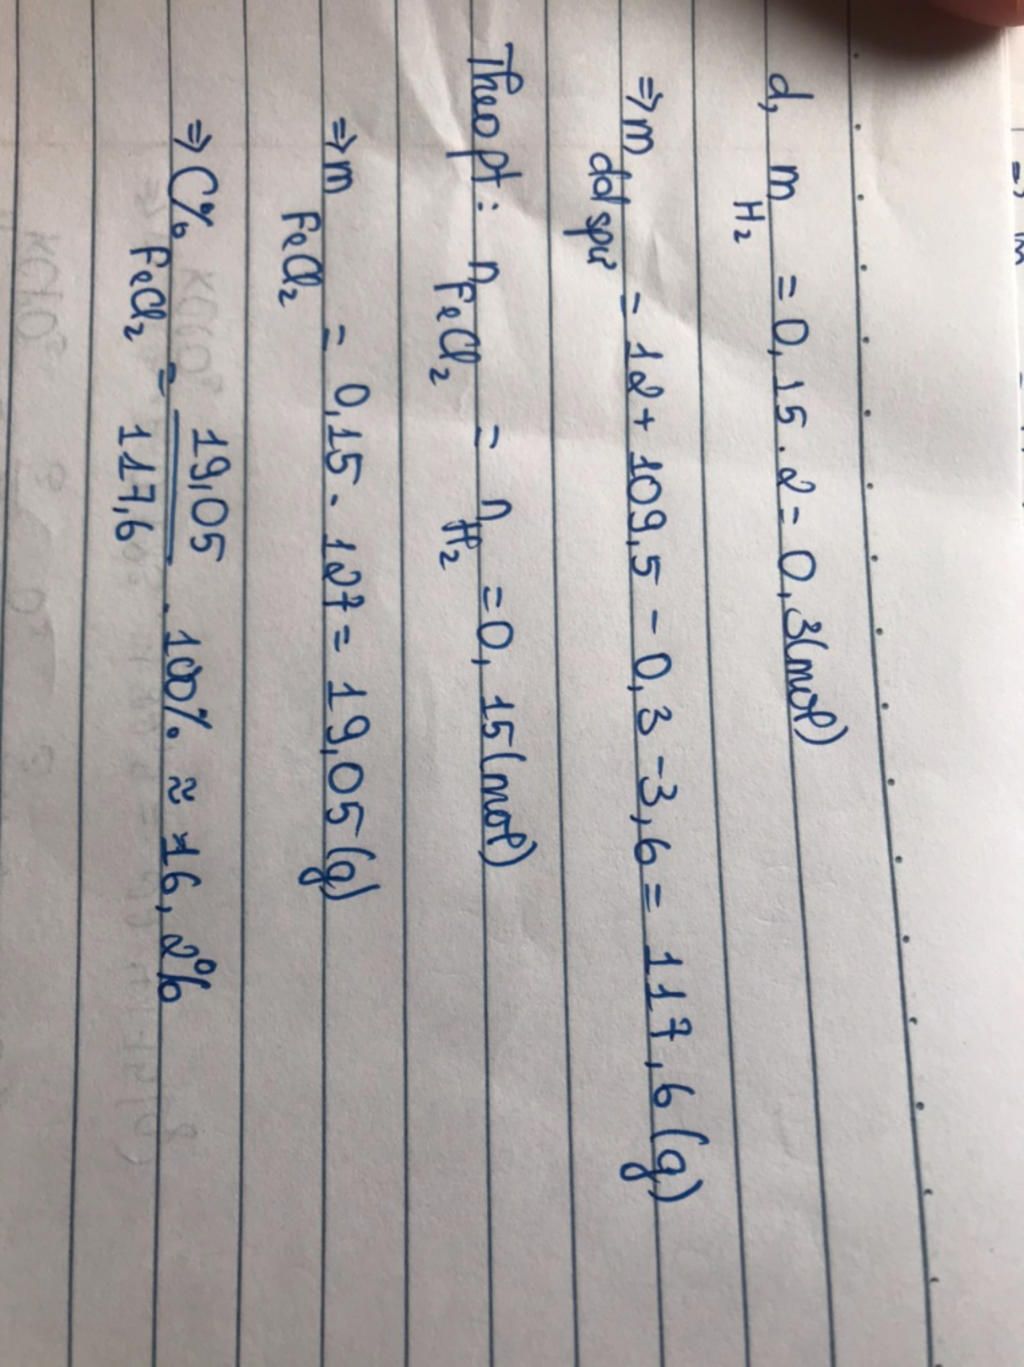 d, m H₂ = 0,15 . 2 = 0,3(mol)
⇒ m dd spư = 12 + 109,5 - 0,3 - 3,6 = 117,6 (g)
Theo pt: n FeCl₂ = n H₂ = 0,15(mol)
⇒ m FeCl₂ = 0,15 . 127 = 19,05 (g)
⇒ C% FeCl₂ = 19,05/117,6 . 100% ≈ 16,2%